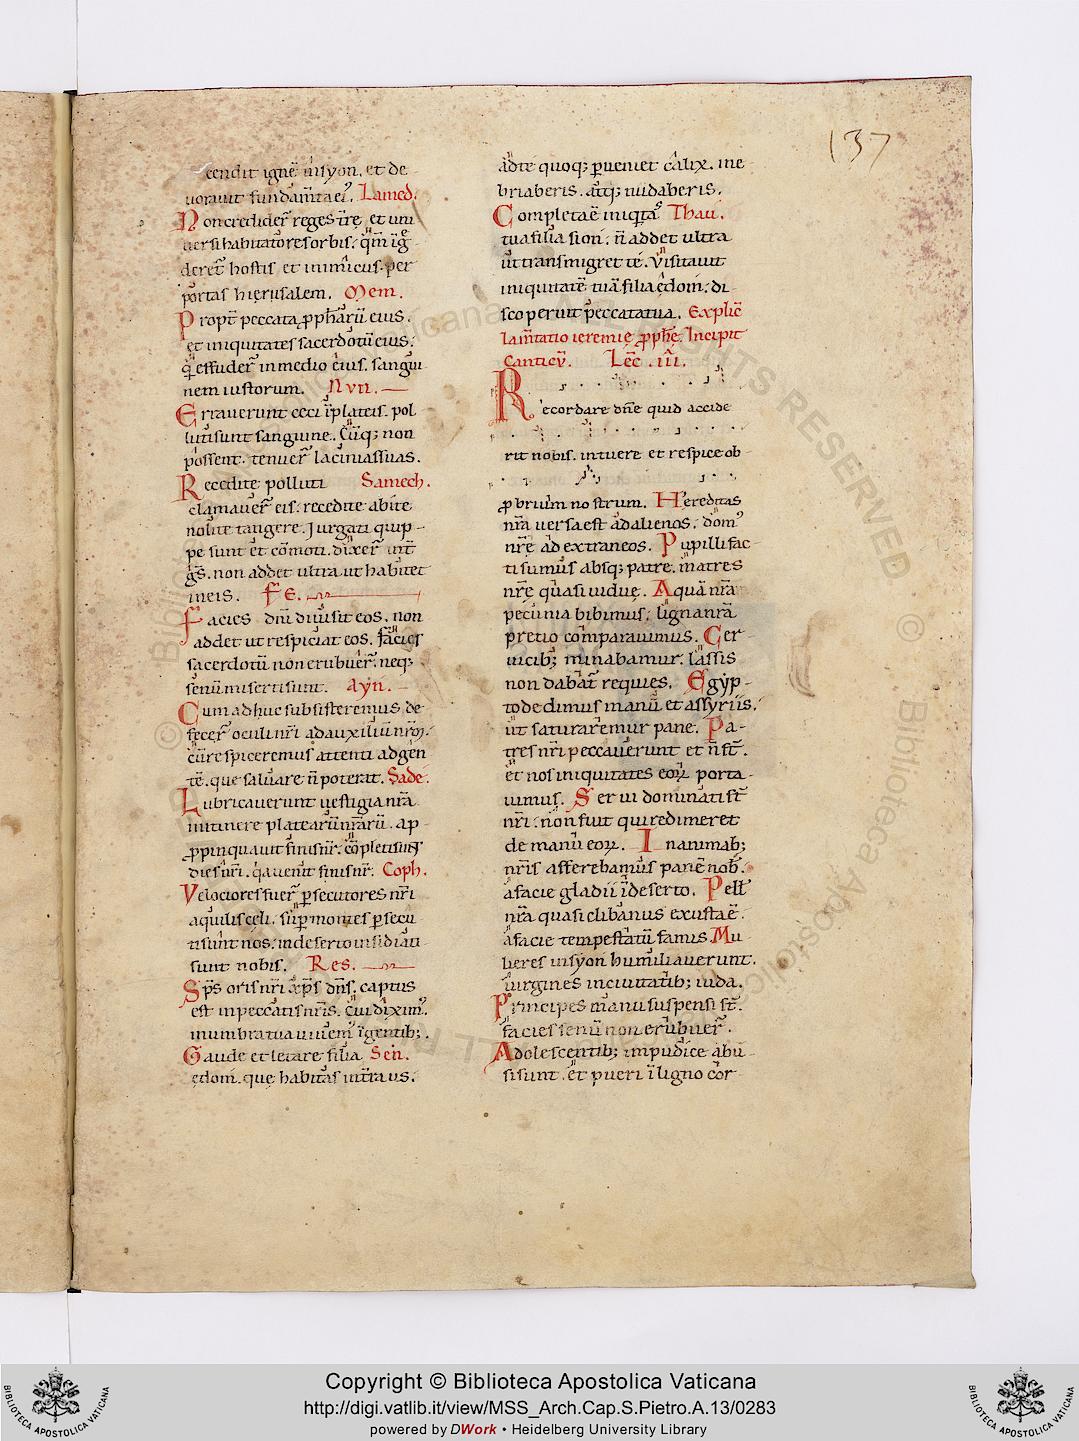 137
cendit igne᷑ insyon. et de
uorauit fundam̅ta ei᷒. Lamed.
Non credider̅ reges tr̅ę. et uni
uersi habitatores orbis. qm̅ ig̅
deret᷑ hostis. et inimicus. per
portas hierusalem. Mem.
Propt̅ peccata ꝓph̅arū eius.
et iniquitates sacerdotū eius.
q̅ effuder̅ in medio eius. sangui
nem iustorum. Nun.
Errauerunt ceci i̅ plateis. pol
luti sunt sanguine. Cūq; non
possent. tenuer̅ lacinias suas.
Recedite polluti Samech.
clamauer̅ eis. recedite abite
nolite tangere. Jurgati quip-
pe sunt et co̅moti. dixer̅ int̅
gs̅. non addet ultra ut habitet
in eis. FE.
Facies dn̅i diuisit eos. non
addet ut respiciat eos. facies
sacerdotū non erubuer̅. neq;
senū miserti sunt. Ayn.
Cum adhuc subsisteremus de-
fecer̅ oculi nr̅i ad auxiliū nr̅m.
cū respiceremus attenti ad gen
te̅. que saluare n̅ poterat. Sade.
Lubricauerunt uestigia nr̅a
in itinere platearū nr̅arū. ap-
ꝓpinquauit finis nr̅. co̅pleti sunt
dies nr̅i. q̅a uenit finis nr̅. Coph.
Velociores fuer̅ ꝑsecutores nr̅i
aquilis celi. sup̅ montes ꝑsecu
ti sunt nos. in deserto insidiati
sunt nobis. Res.
Sps̅ oris nr̅i xp̅s dn̅s. captus
est in peccatis nr̅is. cui dixim᷒.
in umbra tua uiuem᷒ i̅ gentib;.
Gaude et letare filia Sen.
edom. que habitas in tr̅a us.
ad te quoq; ꝑueniet calix. ine
briaberis. atq; nudaberis.
Completa e̅ iniq̅tas Thau.
tua filia sion. n̅ addet ultra
ut transmigret te. Visitauit
iniquitate̅ tuā filia edom. di-
scoperuit peccata tua. Explic̅
lam̅tatio ieremię ꝓphę. Incipit
Canticū. Lec̅ .iii.
Recordare dn̅e quid accide
rit nobis. intuere et respice ob-
ꝓbrium nostrum. Hereditas
nr̅a uersa est ad alienos. dom᷒
nr̅ę ad extraneos. Pupilli fac-
ti sumus absq; patre. matres
nr̅ę quasi uiduę. Aquā nr̅ā
pecunia bibimus. ligna nr̅a
pretio comparauimus. Cer
uicib; minabamur. lassis
non dabat᷑ requies. Egyp-
to dedimus manū. et assyriis.
ut saturaremur pane. Pa-
tres nr̅i peccauerunt et n̅ st̅.
et nos iniquitates eoꝝ porta-
uimus. Serui dominati st̅
nr̅i. non fuit qui redimeret
de manu eoꝝ. In animab;
nr̅is afferebamus pane̅ nob̅.
a facie gladii i̅ deserto. Pell᷒
nr̅a quasi clibanus exusta e̅.
a facie tempestatū famis. Mu
lieres in syon humiliauerunt.
uirgines in ciuitatib; iuda.
Principes manu suspensi st̅.
facies senū non erubuer̅.
Adolescentib; impudice abu-
si sunt. et pueri i̅ ligno cor-
Copyright © Biblioteca Apostolica Vaticana
http://digi.vatlib.it/view/MSS_Arch.Cap.S.Pietro.A.13/0283
powered by DWork • Heidelberg University Library